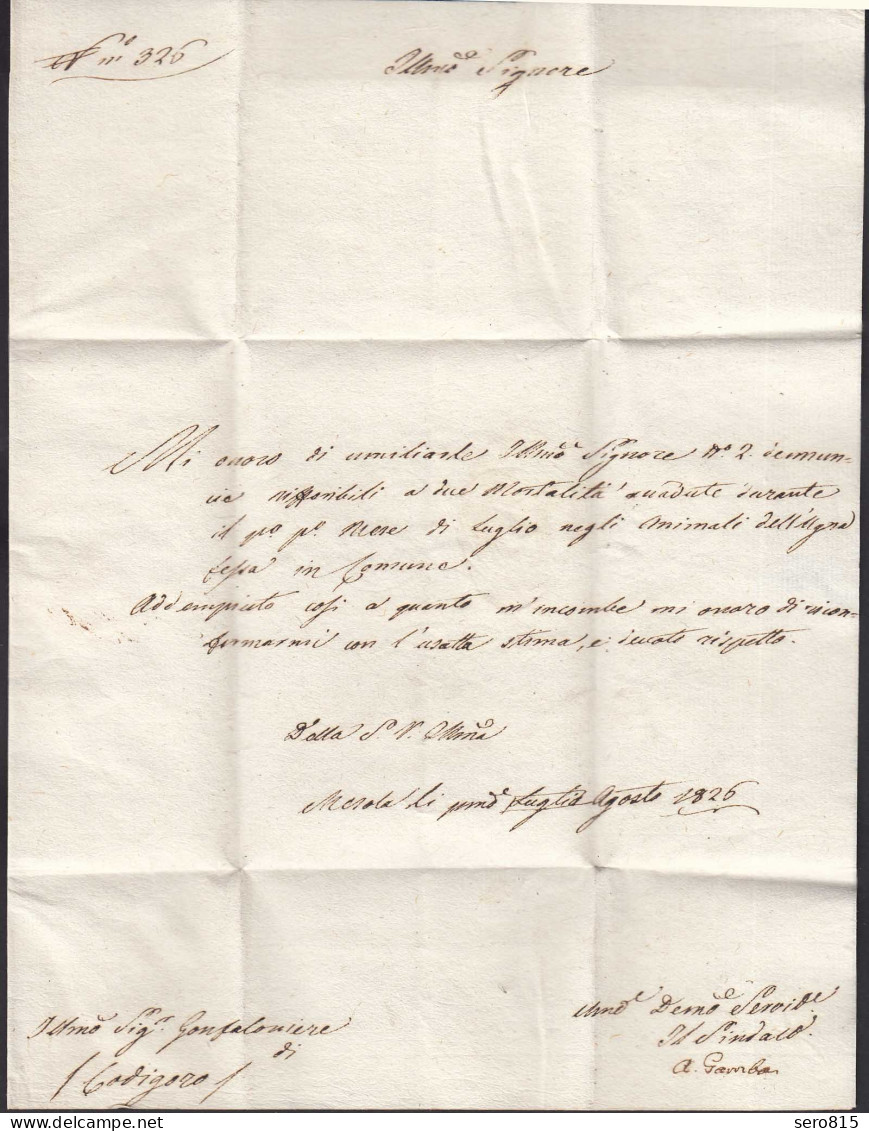 N.mo 326
Illmo Signore
Mi onoro di umiliarle Illmo Signore No. 2. denun-
cie riferibili a due Mortalità accadute durante
il po. po. Mese di Luglio negli Animali dell'Ugna
fessa in Comune.
Addempiuto così a quanto m'incombe mi onoro di ricon-
fermarmi con l'esatta stima, e devoto rispetto.
Della S. V. Illma
Mesola li primo Luglio Agosto 1826
Umo Devmo Servid.e
Il Sindaco
A. Gamba
Illmo Sig.r Gonfaloniere
di
/ Codigoro /
delcampe.net
sero815